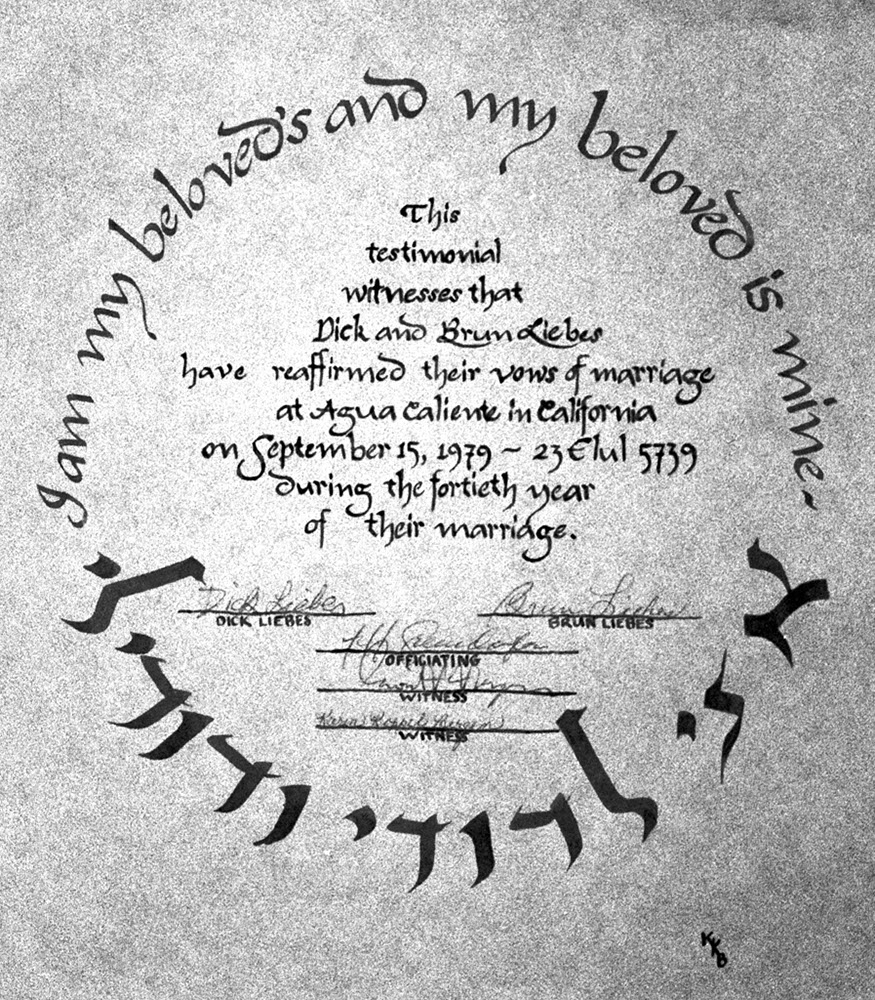 I am my beloved's and my beloved is mine-
This
testimonial
witnesses that
Dick and Brun Liebes
have reaffirmed their vows of marriage
at Agua Caliente in California
on September 15, 1979 ~ 23 Elul 5739
during the fortieth year
of their marriage.
Dick Liebes
DICK LIEBES
Brun Liebes
BRUN LIEBES
OFFICIATING
WITNESS
Karen
WITNESS
אני לדודי ודודי לי
KKB